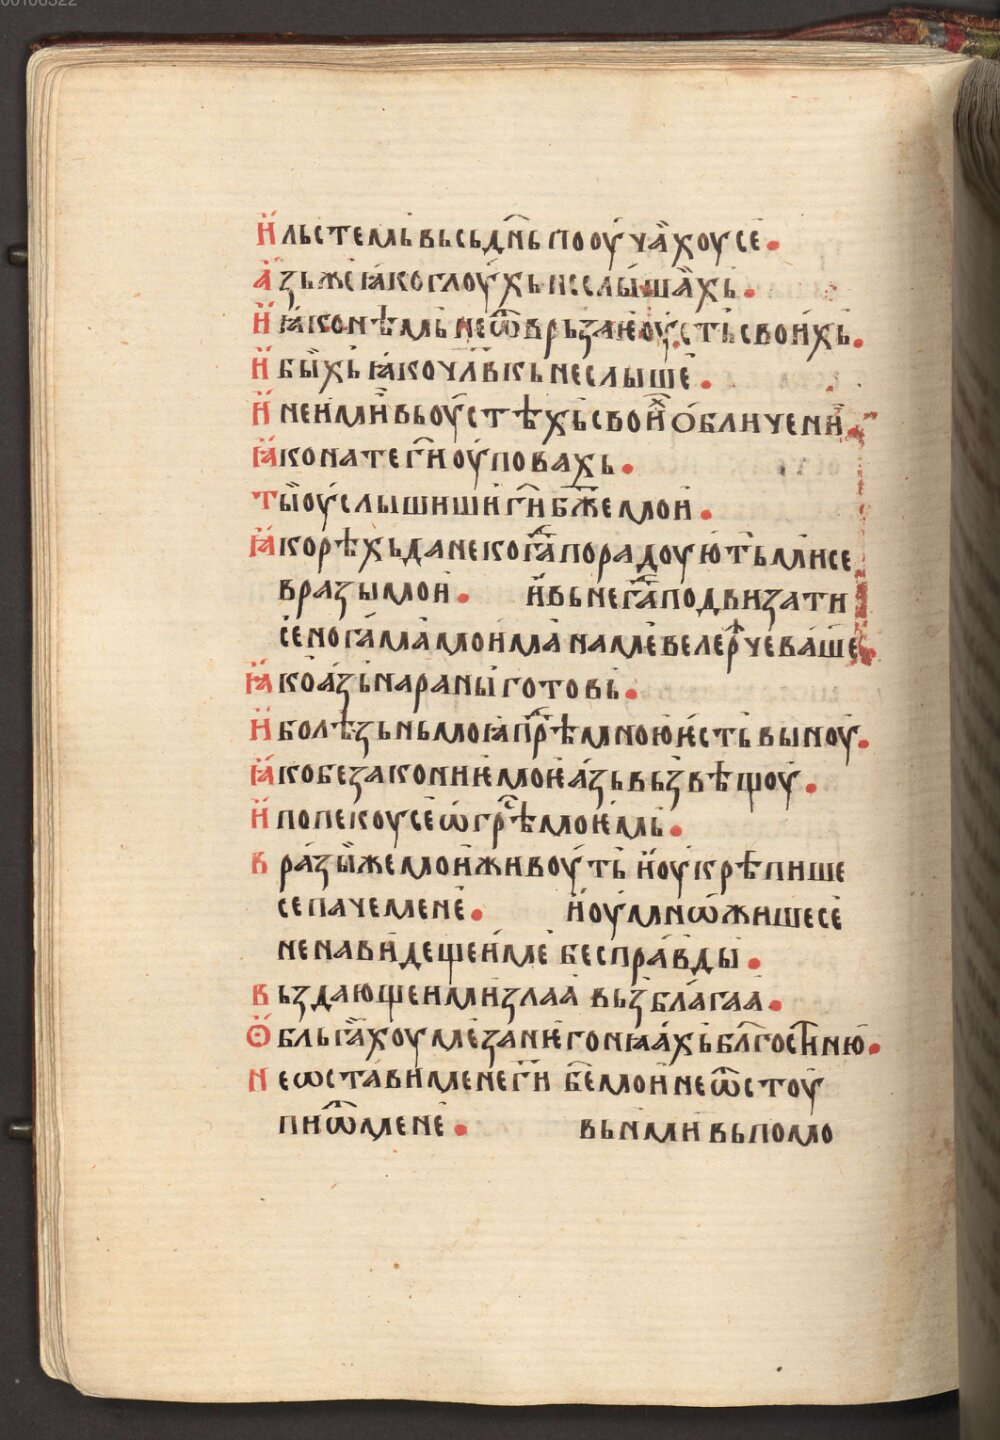 00108322
И҆ льстемь вьсь дн҃ь поѹ҆ча̀хоусе •
А҆зь же ꙗ҆ко глоу́хь не слы́шахь •
И҆ ꙗ҆ко нѣмь не ѿврьзае ѹ҆сть свои́хь •
И҆ бы́хь ꙗ҆ко чл҃вкь не слыше •
И҆ не и҆мы̀ вь ѹ҆стѣхь свои҆ⷯ ѻ҆бличенїи •
Ꙗ҆ко на те гн҃ ѹ҆повахь •
Ты̀ ѹ҆слышиши гн҃ бж҃е мои •
Ꙗ҆ко рѣхь да не когⷣа порадоую҆ть ми се
врази мои • И҆ вьнегⷣа подвизати
се ногама моима на ме велерⷱ҇еваше •
Ꙗ҆ко а҆зь на раны готовь •
И҆ болѣзнь моꙗ прⷣѣ мною ѥсть выноу •
Ꙗ҆ко безаконниѥ моѥ а҆зь вьзвѣщоу •
И҆ попекоусе ѡ҆ грⷭ҇ѣ моѥмь •
Вра́зы же мои живоу́ть и҆ ѹ҆крѣпише
се паче мене • И҆ ѹ҆мнѡжишесе
ненави́дещеи ме бес правды •
Вьздающеи ми злаа вьз бла́гаа •
Ѻ҆бльгахоу ме зане гонꙗа́хь блг҃остн҃ю •
Не ѡстави мене гн҃ бе҃ мои не ѿстоу
пи ѿ мене • вьнми вь помо